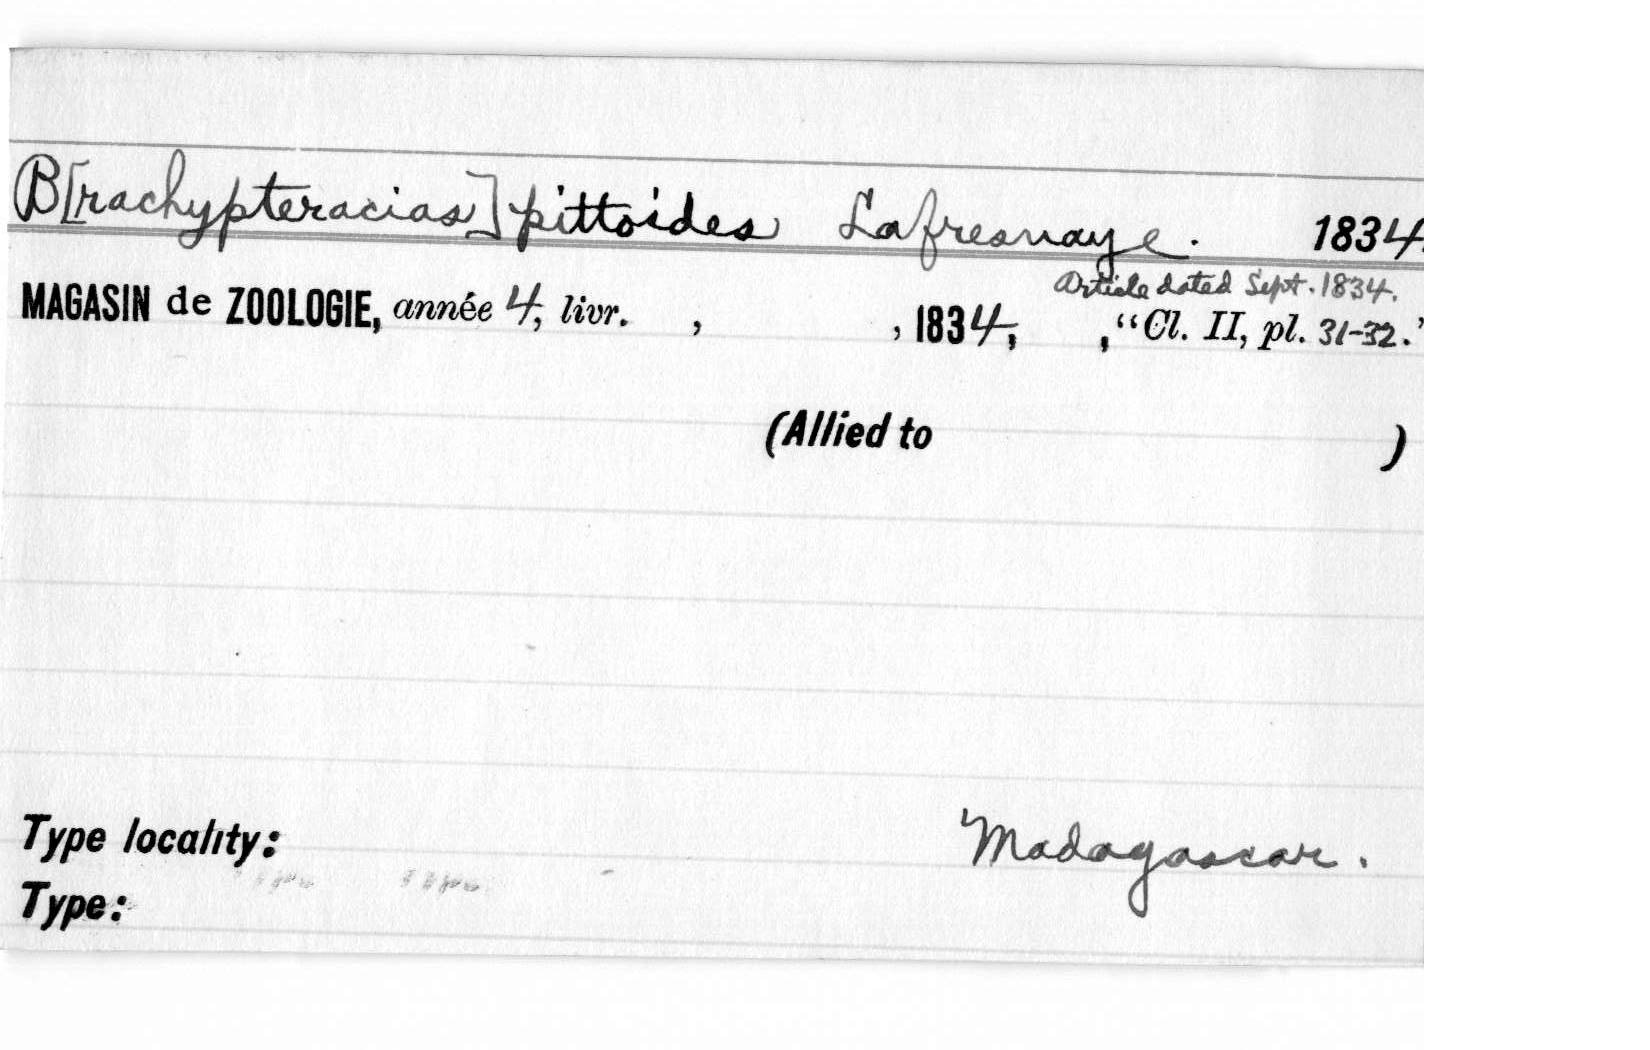 B[rachypteracias] pittoides Lafresnaye. 1834.
Article dated Sept. 1834.
MAGASIN de ZOOLOGIE, année 4, livr. , , 1834, , "Cl. II, pl. 31-32."
(Allied to )
Type locality: Madagascar.
Type: